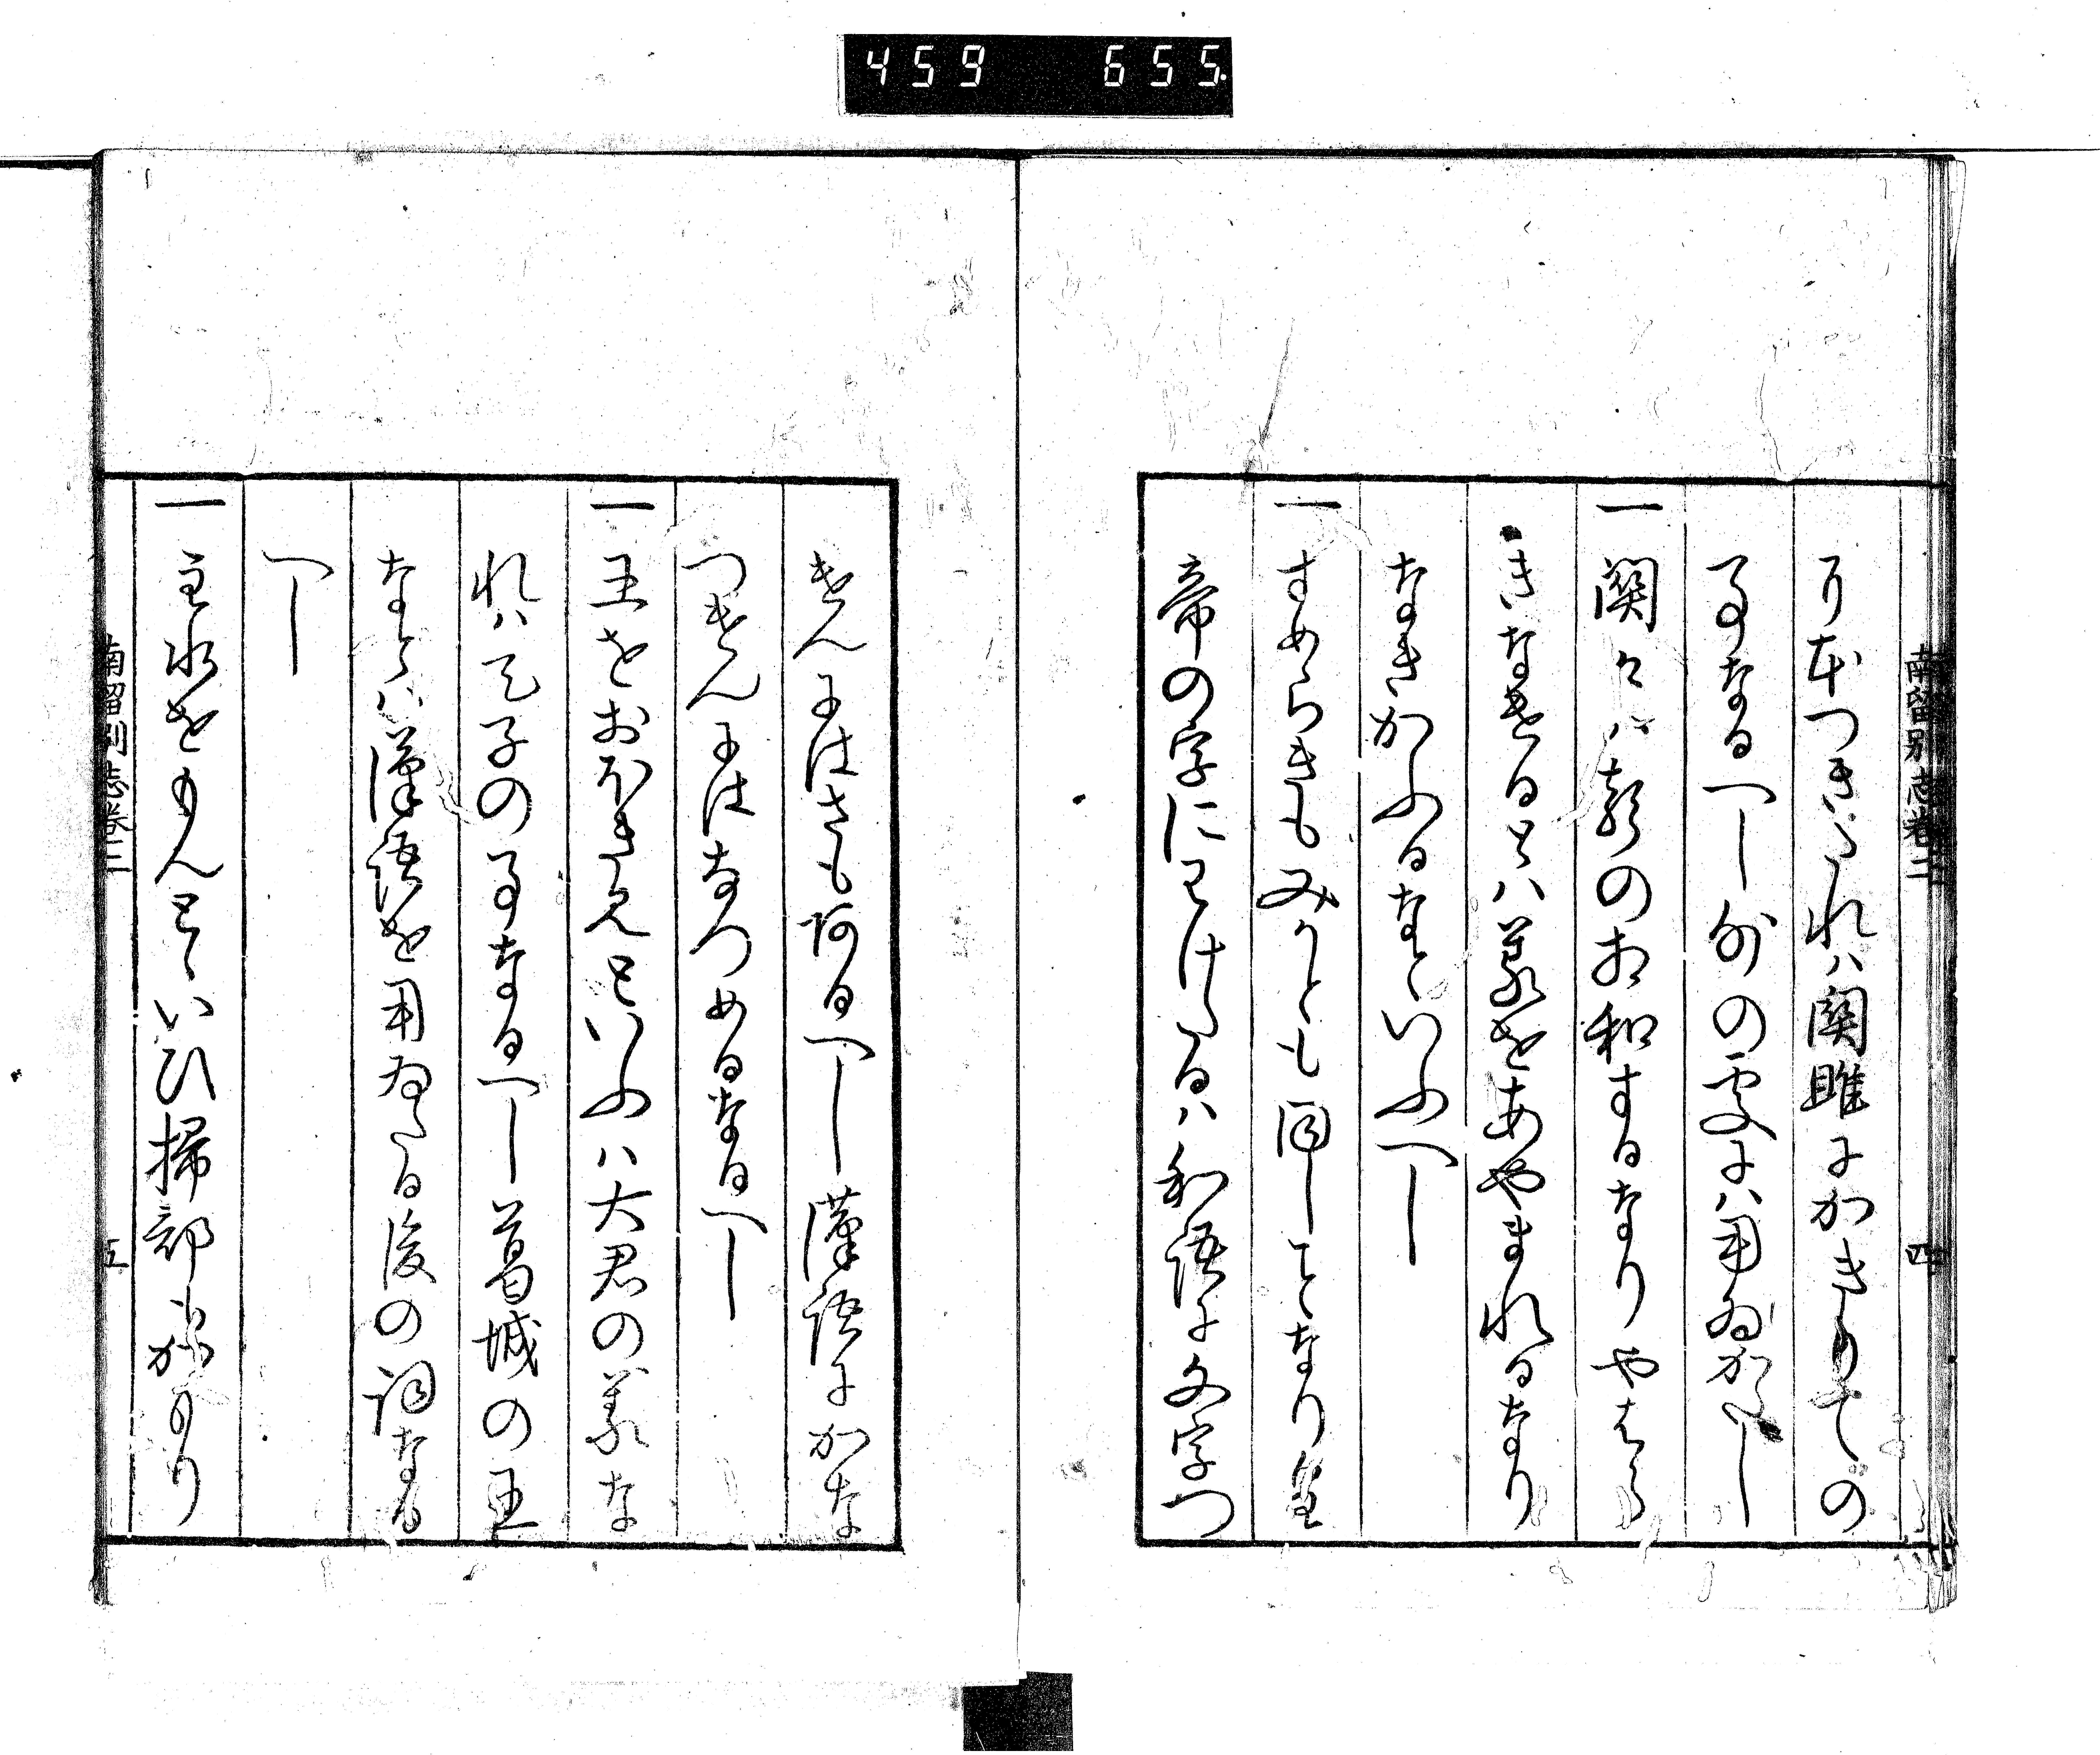 459 655
南留別志巻二 四
り本つきたれハ関雎にかきりての
事なるへし外の処にハ用ゐかたし
一 関々ハ聲の相和するなりやはら
きなけるとハ義をあやまれるなり
なきかふるなといふへし
一 すめらきもみかとも同しことなり皇
帝の字にわけたるハ和語に文字つ
けんにはさも阿るへし漢語にかな
つけんにはなつめるなるへし
一 王をおほきみといふハ大君の義な
れハ天子の事なるへし葛城の王
なとハ漢語を用ゐたる後の詞なる
へし
一 主水をもんとゝいひ掃部をかにもり
南留別志巻二 五